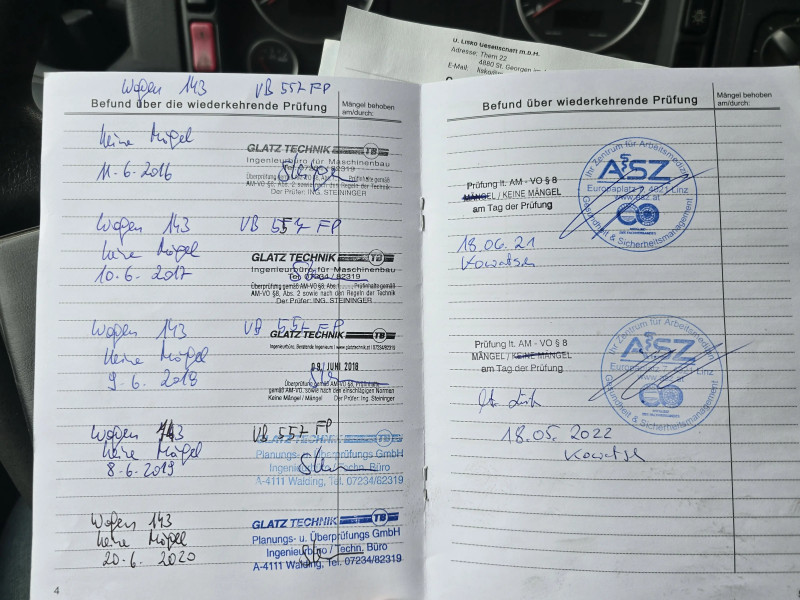 U. Lisko Gesellschaft m.b.H.
Adresse: Thern 22
4880 St. Georgen im
E-Mail: lisko@
Wagen 143 VB 557 FP
Befund über die wiederkehrende Prüfung
Mängel behoben
am/durch:
Keine Mägel
11-6-2016
GLATZ TECHNIK
Ingenieurbüro für Maschinenbau
Überprüfung gemäß AM-VO §8, Prüfinhalte gemäß
AM-VO §6, Abs. 2 sowie nach den Regeln der Technik
Der Prüfer: ING. STEININGER
Wagen 143 VB 557 FP
Keine Mägel
10-6-2017
GLATZ TECHNIK TB
Ingenieurbüro für Maschinenbau
Tel. 07234 / 82319
Überprüfung gemäß AM-VO §8, Abs. Prüfinhalte gemäß
AM-VO §6, Abs. 2 sowie nach den Regeln der Technik
Der Prüfer: ING. STEININGER
Wagen 143 VB 557 FP
Keine Mägel
9-6-2018
GLATZ TECHNIK TB
Ingenieurbüro, Beratende Ingenieure I www.glatztechnik.at I 07234/82319
09. JUNI 2018
Überprüfung gemäß AM-VO §8, Prüfinhalte
gemäß AM-VO, sowie nach den einschlägigen Normen
Keine Mängel / Mängel Der Prüfer: Ing. Steininger
Wagen 143 VB 557 FP
Keine Mägel
8-6-2019
GLATZ TECHNIK TB
Planungs- u. Überprüfungs GmbH
Ingenieurbüro / Techn. Büro
A-4111 Walding, Tel. 07234/82319
Wagen 143
Keine Mägel
20-6-2020
GLATZ TECHNIK TB
Planungs- u. Überprüfungs GmbH
Ingenieurbüro / Techn. Büro
A-4111 Walding, Tel. 07234/82319
4
Befund über wiederkehrende Prüfung
Mängel behoben
am/durch:
Prüfung lt. AM - VO § 8
MÄNGEL / KEINE MÄNGEL
am Tag der Prüfung
18.06.21
Kowatsch
Ihr Zentrum für Arbeitsmedizin
ASZ
Europaplatz 7, 4021 Linz
www.asz.at
Gesundheit & Sicherheitsmanagement
Prüfung lt. AM - VO § 8
MÄNGEL / KEINE MÄNGEL
am Tag der Prüfung
18.05.2022
Kowatsch
Ihr Zentrum für Arbeitsmedizin
ASZ
Europaplatz 7, 4021 Linz
Gesundheit & Sicherheitsmanagement